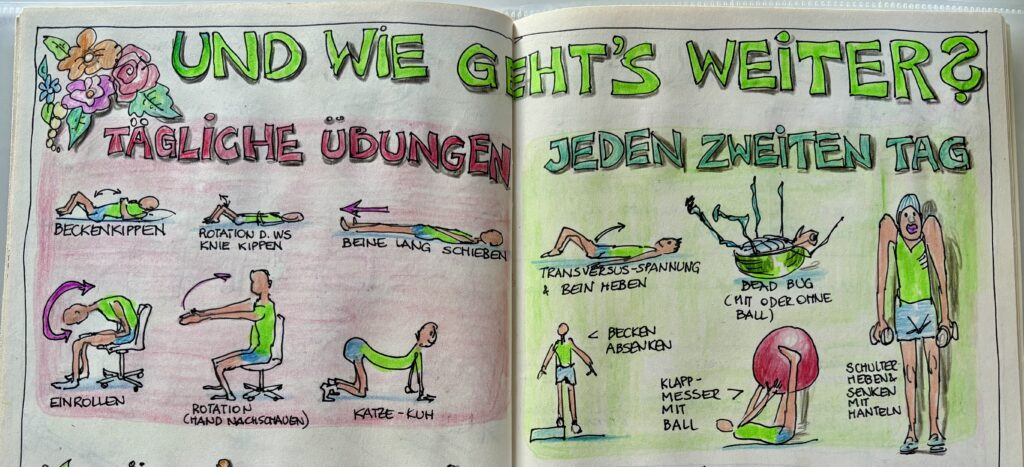 UND WIE GEHT'S WEITER?
TÄGLICHE ÜBUNGEN
BECKENKIPPEN
ROTATION D. WS
KNIE KIPPEN
BEINE LANG SCHIEBEN
EINROLLEN
ROTATION
(HAND NACHSCHAUEN)
KATZE-KUH
JEDEN ZWEITEN TAG
TRANSVERSUS-SPANNUNG
& BEIN HEBEN
DEAD BUG
(MIT ODER OHNE
BALL)
< BECKEN
ABSENKEN
KLAPP-
MESSER
MIT
BALL
SCHULTER
HEBEN &
SENKEN
MIT
HANTELN